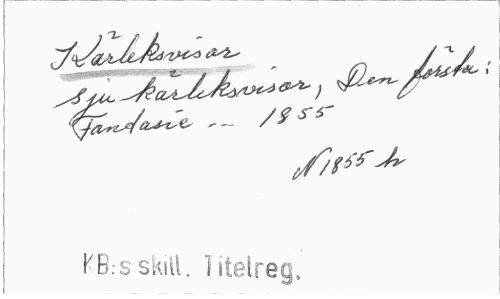 Kärleksvisor
sju kärleksvisor, Den första:
Fantasie -- 1855
N 1855 h
KB:s skill. Titelreg.